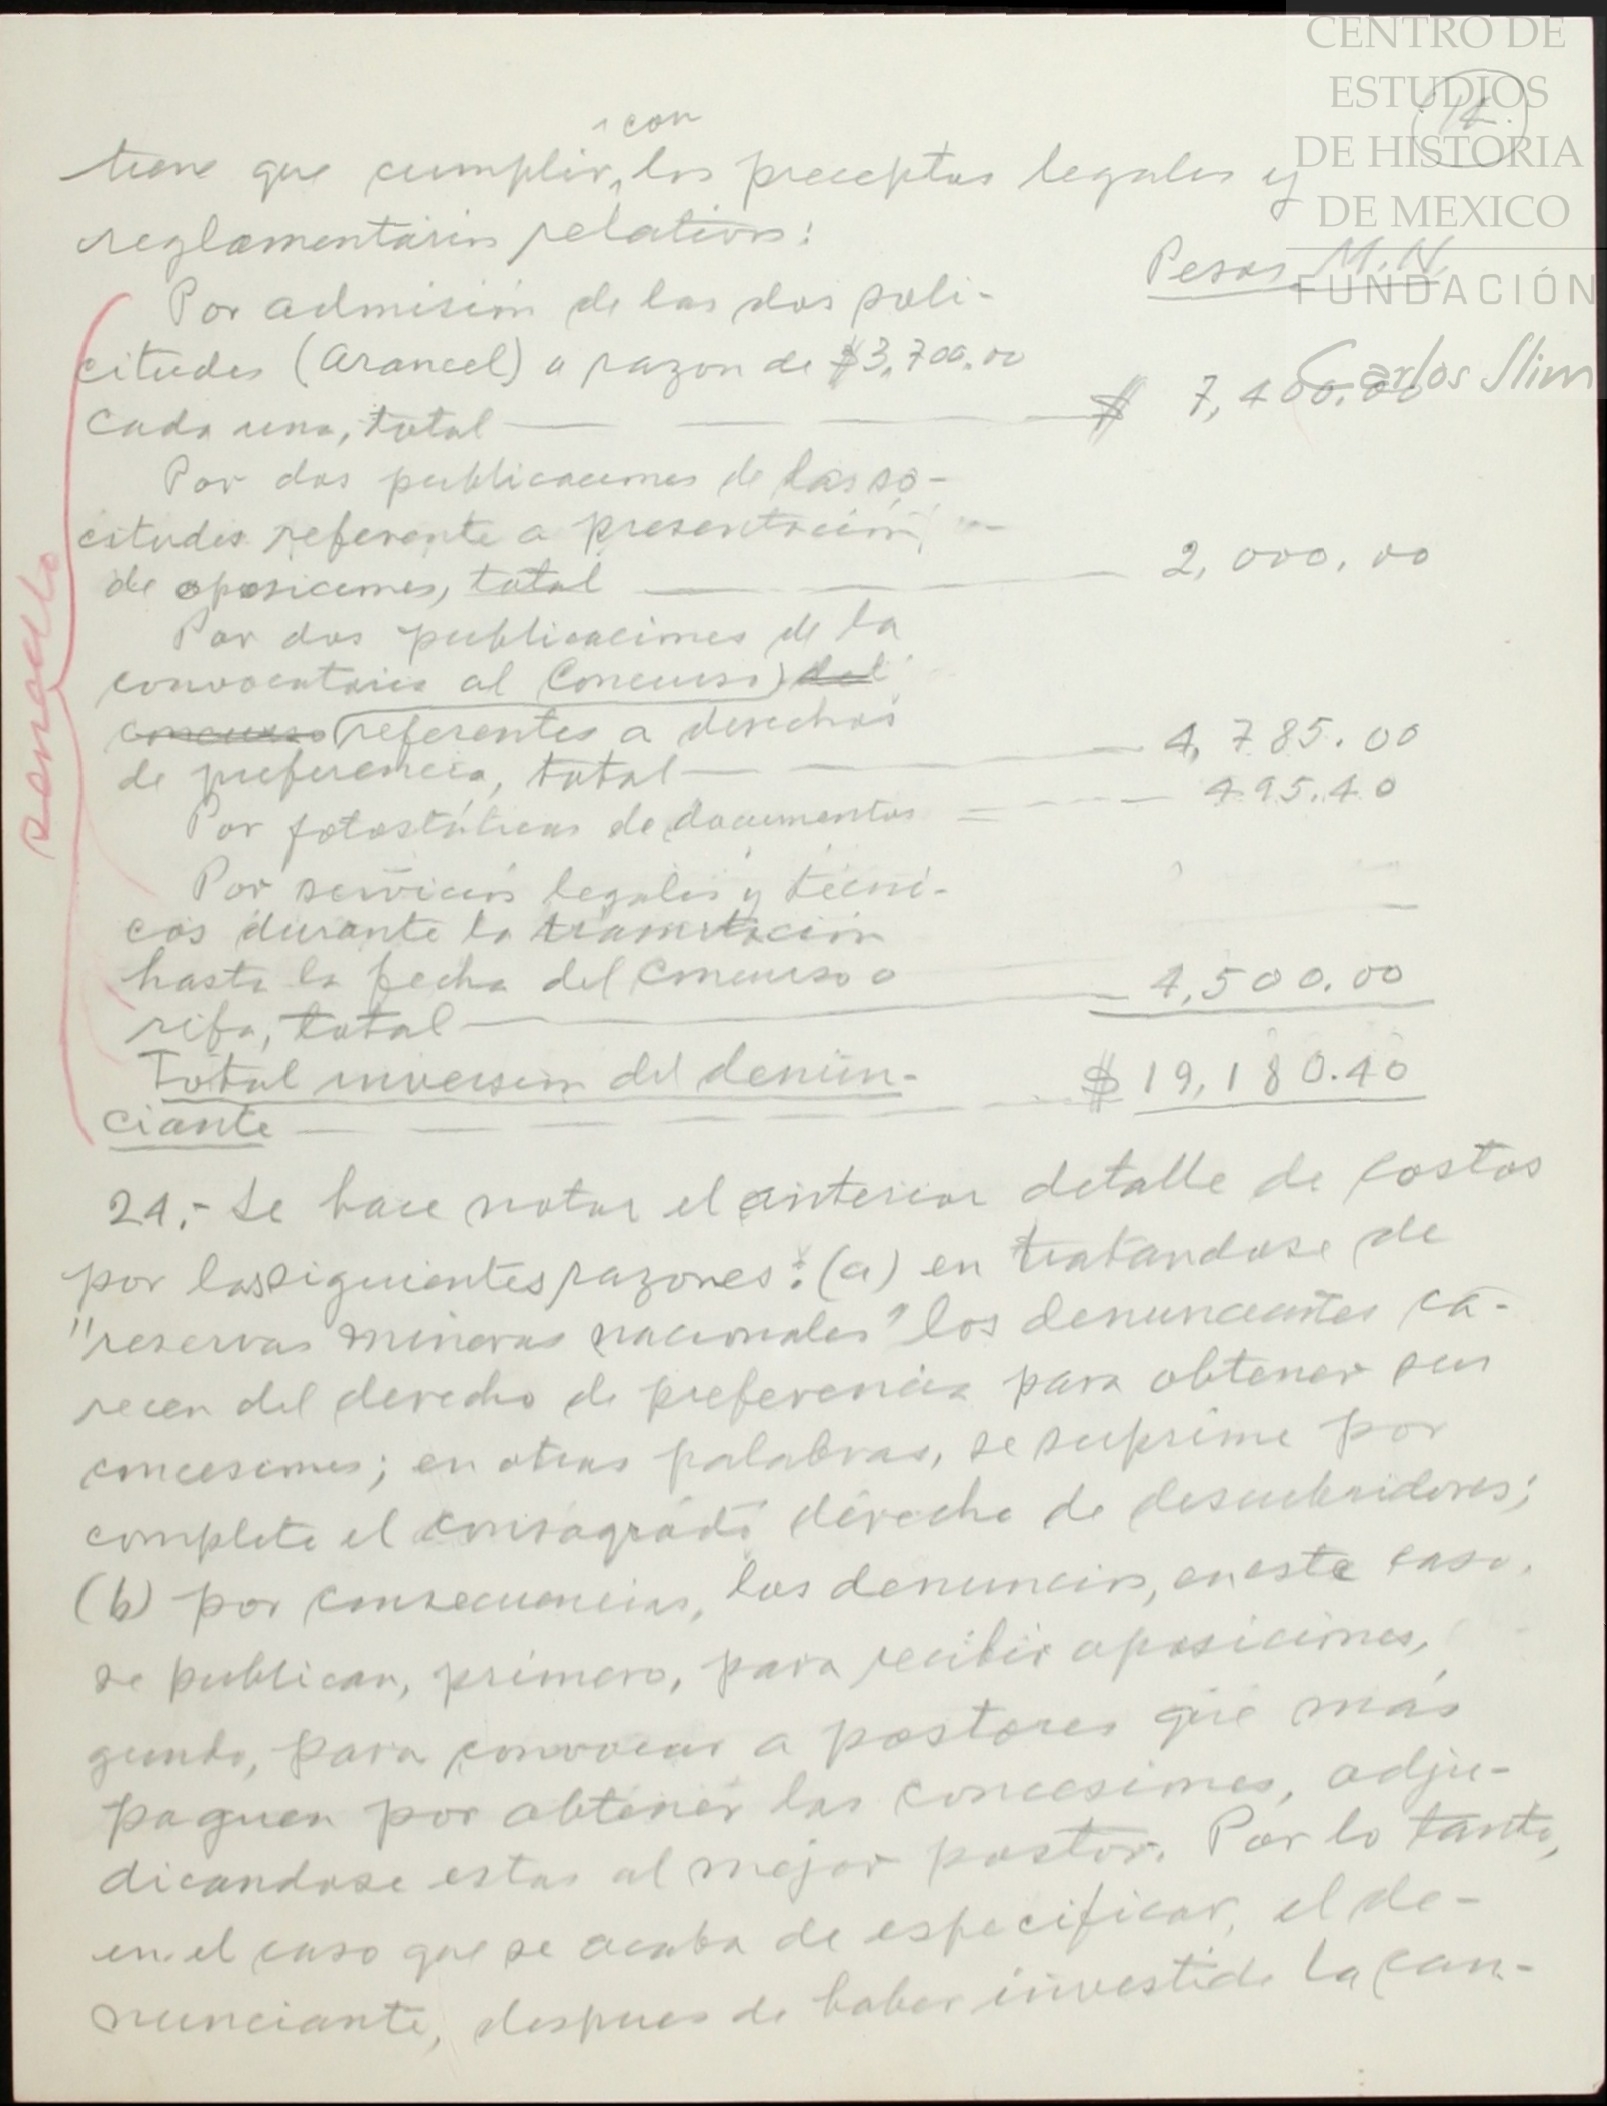 CENTRO DE
ESTUDIOS
DE HISTORIA
DE MEXICO
FUNDACIÓN
Carlos Slim
con
tiene que cumplir, los preceptos legales y
reglamentarios relativos:
Pesos M.N.
Por admisión de las dos soli-
citudes (Arancel) a razon de $3,700.00
cada una, total — $ 7,400.00
Por dos publicaciones de las so-
citudes referente a presentación
de oposiciones, total — 2,000.00
Por dos publicaciones de la
convocatoria al Concurso del
concurso referentes a derechos
de preferencia, total — 4,785.00
Por fotostáticas de documentos — 495.40
Por servicios legales y técni-
cos durante la tramitación
hasta la fecha del Concurso o
rifa, total — 4,500.00
Total inversion del denun-
ciante — $ 19,180.40
24.- Se hace notar el anterior detalle de costos
por las siguientes razones: (a) en tratandose de
"reservas mineras nacionales" los denunciantes ca-
recen del derecho de preferencia para obtener sus
concesiones; en otras palabras, se suprime por
completo el consagrado derecho de descubridores;
(b) por consecuencias, los denuncios, en este caso,
se publican, primero, para recibir oposiciones,
gundo, para convocar a postores que más
paguen por obtener las concesiones, adju-
dicandose estas al mejor postor. Por lo tanto,
en el caso que se acaba de especificar, el de-
nunciante, despues de haber invertido la can-